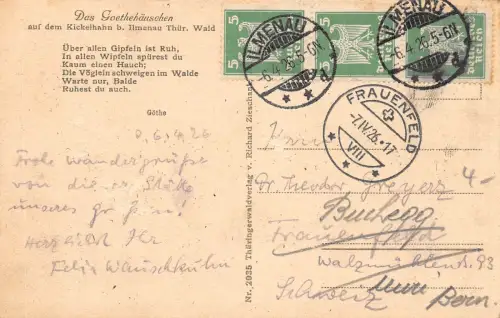 Das Goethehäuschen
auf dem Kickelhahn b. Ilmenau Thür. Wald
Über allen Gipfeln ist Ruh,
In allen Wipfeln spürest du
Kaum einen Hauch;
Die Vöglein schweigen im Walde
Warte nur, Balde
Ruhest du auch.
Göthe
6.4.26
Frohe Wandergrüße
von dieser Stätte
unseres
Herzlichst Ihr
Felix
Nr. 2025 Thüringerwaldverlag v. Richard Zieschank
5 5 5
Deutsches Reich
ILMENAU
-6.4.26.5-6N
ILMENAU
-6.4.26.5-6N
FRAUENFELD
-7.IV.26.17
VIII
Herrn
Dr Theodor Greyerz
4-
Buchegg
Frauenfeld
93
Schweiz
Bern.